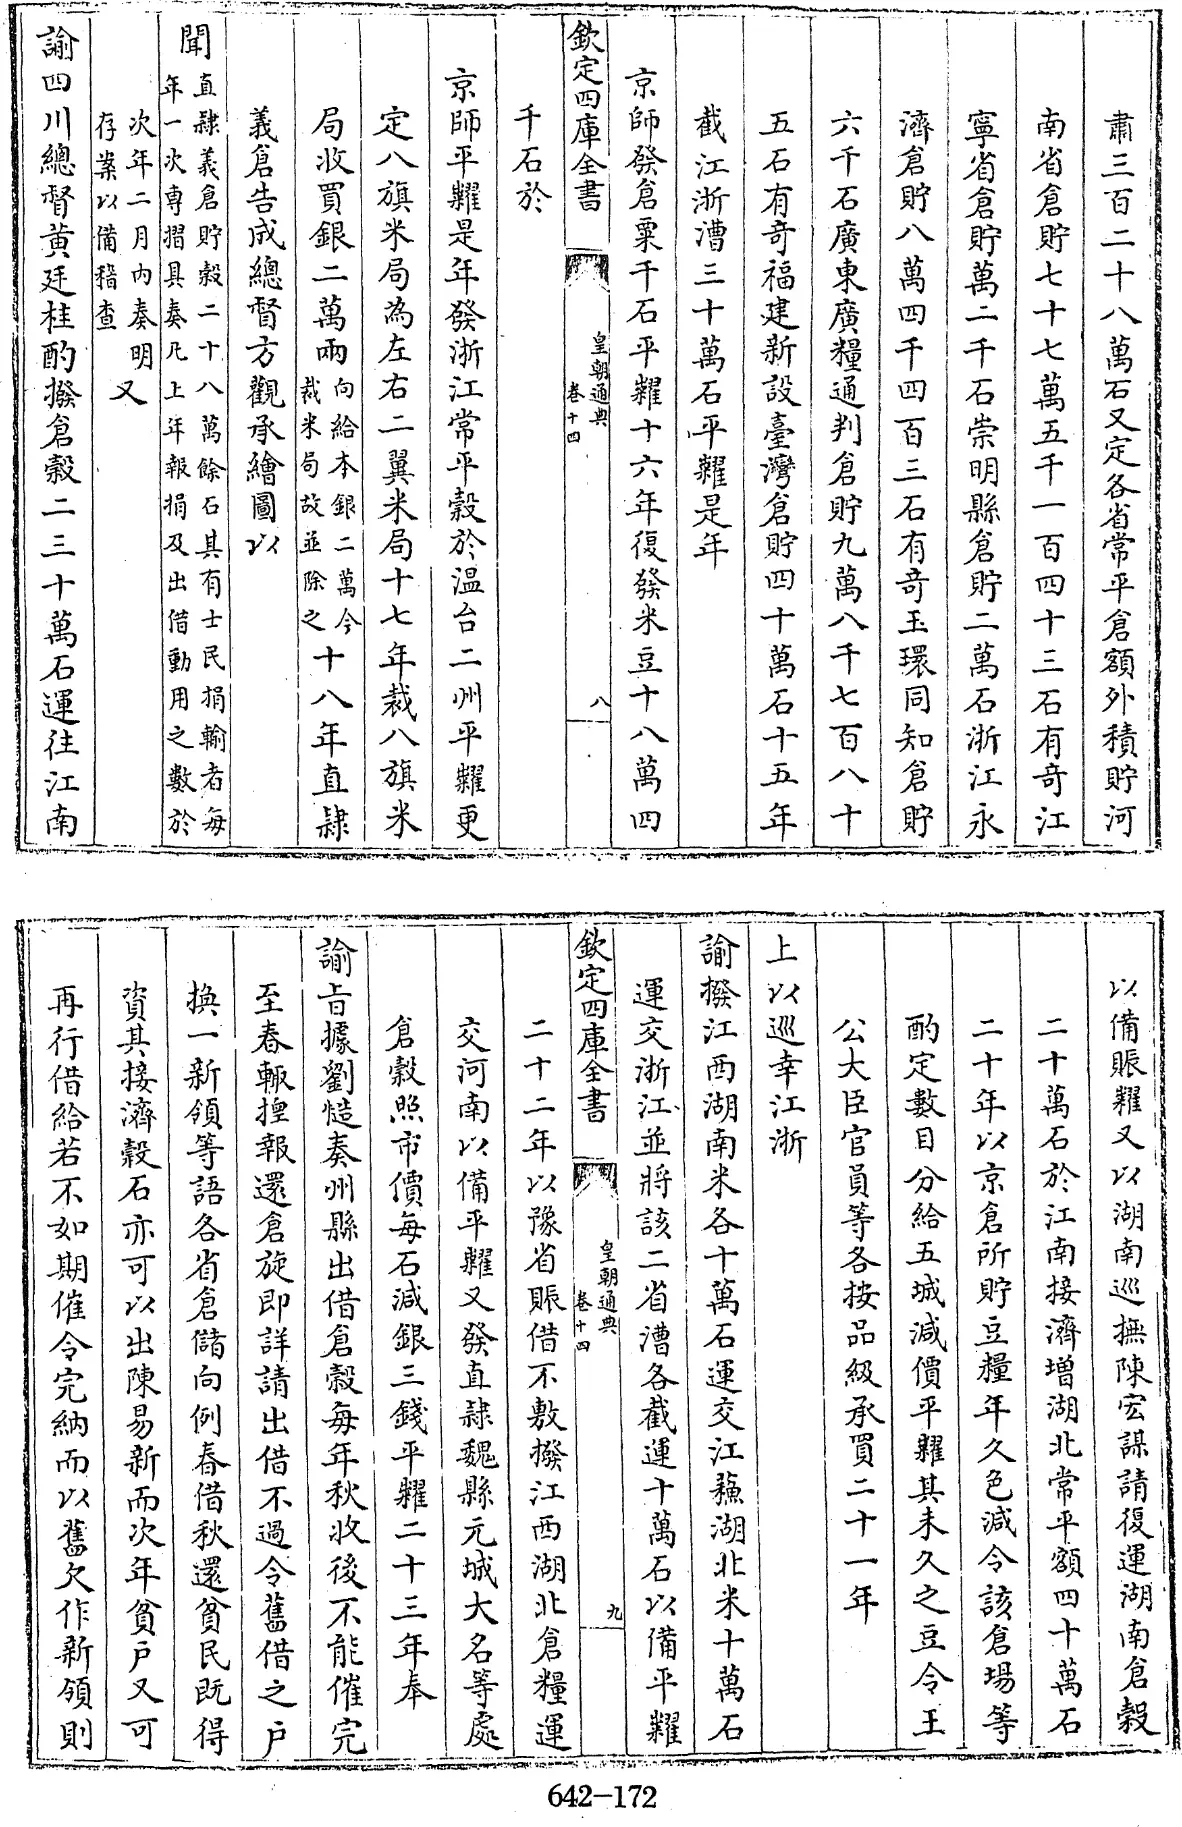 肅三百二十八萬石又定各省常平倉額外積貯河
南省倉貯七十七萬五千一百四十三石有奇江
寧省倉貯萬二千石崇明縣倉貯二萬石浙江永
濟倉貯八萬四千四百三石有奇玉環同知倉貯
六千石廣東廣糧通判倉貯九萬八千七百八十
五石有奇福建新設臺灣倉貯四十萬石十五年
截江浙漕三十萬石平糶是年
京師發倉粟千石平糶十六年復發米豆十八萬四
欽定四庫全書
皇朝通典
卷十四
八
千石於
京師平糶是年發浙江常平穀於温台二州平糶更
定八旗米局為左右二翼米局十七年裁八旗米
局收買銀二萬兩向給本銀二萬今裁米局故並除之十八年直隸
義倉告成總督方觀承繪圖以
聞直隷義倉貯穀二十八萬餘石其有士民捐輸者每年一次專摺具奏凡上年報捐及出借動用之數於
次年二月內奏明存案以備稽查又
諭四川總督黄廷桂酌撥倉穀二三十萬石運往江南
以備賑糶又以湖南巡撫陳宏謀請復運湖南倉穀
二十萬石於江南接濟增湖北常平額四十萬石
二十年以京倉所貯豆糧年久色減令該倉場等
酌定數目分給五城減價平糶其未久之豆令王
公大臣官員等各按品級承買二十一年
上以巡幸江浙
諭撥江西湖南米各十萬石運交江蘇湖北米十萬石
運交浙江並將該二省漕各截運十萬石以備平糶
欽定四庫全書
皇朝通典
卷十四
九
二十二年以豫省賑借不敷撥江西湖北倉糧運
交河南以備平糶又發直隷魏縣元城大名等處
倉穀照市價每石減銀三錢平糶二十三年奉
諭旨據劉慥奏州縣出借倉穀每年秋收後不能催完
至春輒揑報還倉旋即詳請出借不過令舊借之户
換一新領等語各省倉儲向例春借秋還貧民既得
資其接濟穀石亦可以出陳易新而次年貧戶又可
再行借給若不如期催令完納而以舊欠作新領則
642-172